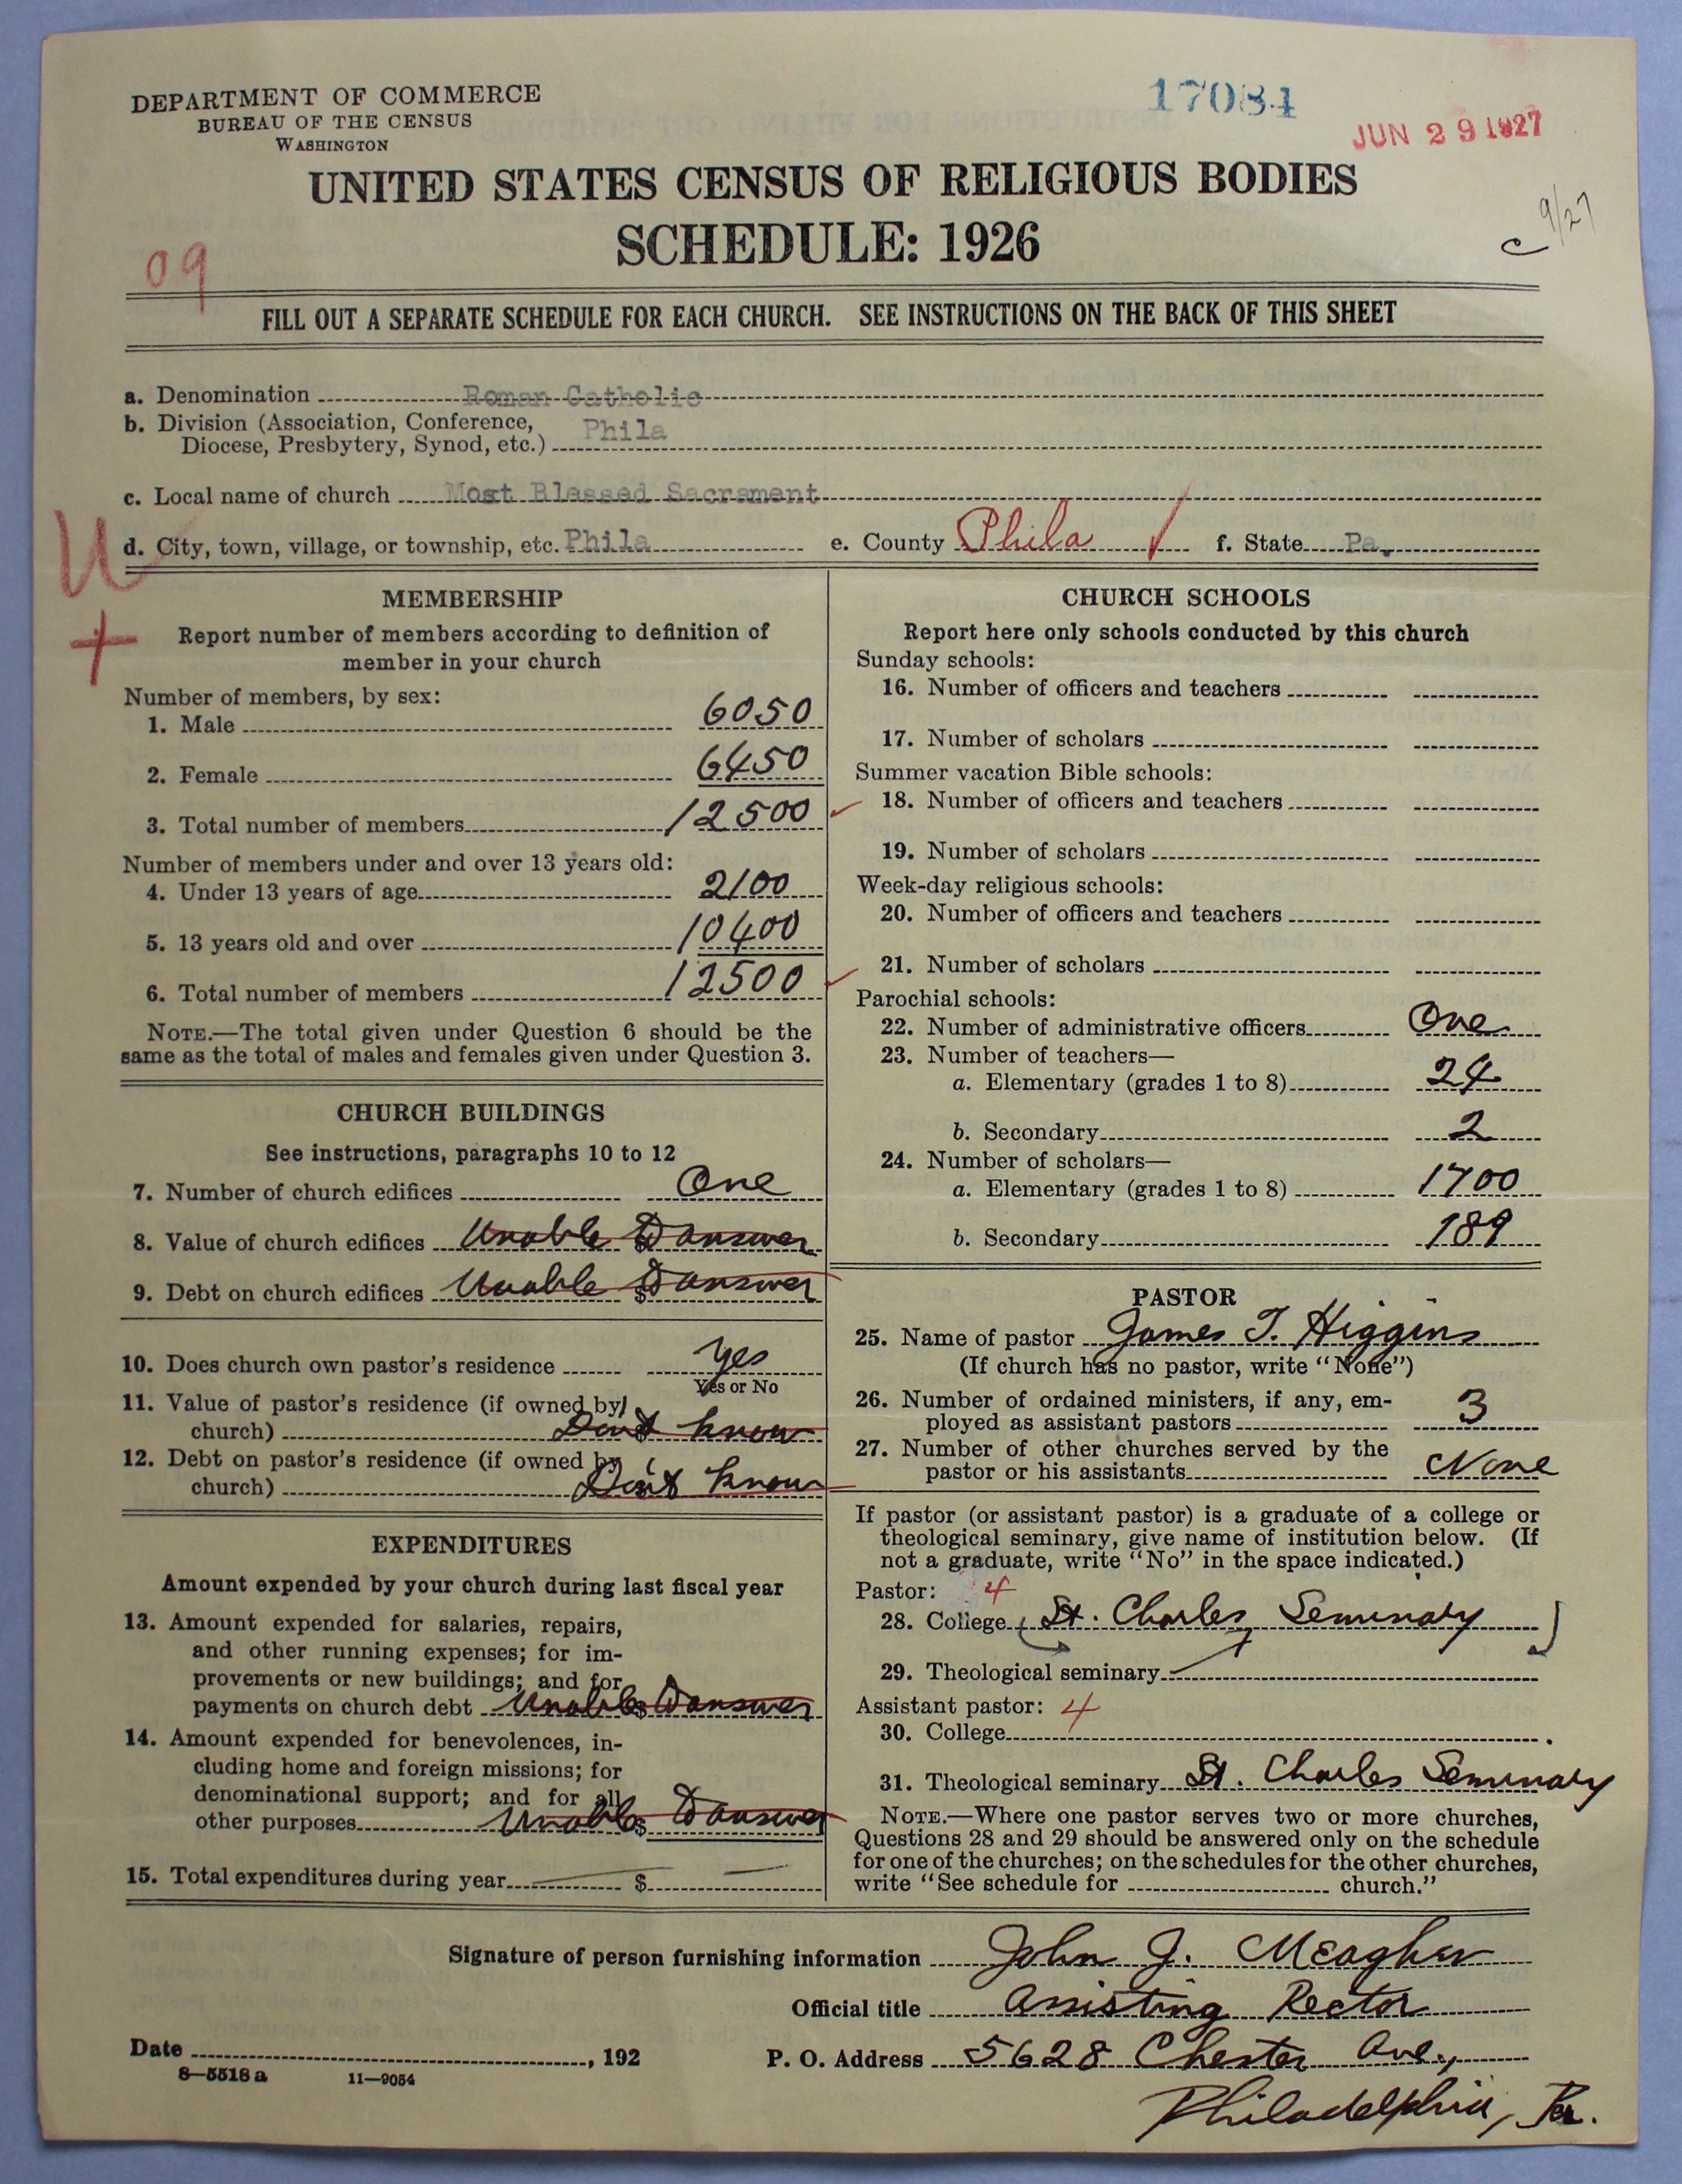 17084
JUN 29 1927
DEPARTMENT OF COMMERCE
BUREAU OF THE CENSUS
WASHINGTON
UNITED STATES CENSUS OF RELIGIOUS BODIES
SCHEDULE: 1926
9/27
c
09
FILL OUT A SEPARATE SCHEDULE FOR EACH CHURCH. SEE INSTRUCTIONS ON THE BACK OF THIS SHEET
a. Denomination Roman Catholic
b. Division (Association, Conference,
Diocese, Presbytery, Synod, etc.) Phila
c. Local name of church Most Blessed Sacrament
U
d. City, town, village, or township, etc. Phila e. County Phila ✓ f. State Pa.
MEMBERSHIP
+
Report number of members according to definition of
member in your church
Number of members, by sex:
1. Male 6050
2. Female 6450
3. Total number of members 12500 ✓
Number of members under and over 13 years old:
4. Under 13 years of age 2100
5. 13 years old and over 10400
6. Total number of members 12500 ✓
NOTE.—The total given under Question 6 should be the
same as the total of males and females given under Question 3.
CHURCH BUILDINGS
See instructions, paragraphs 10 to 12
7. Number of church edifices One
8. Value of church edifices $ Unable to answer
9. Debt on church edifices $ Unable to answer
10. Does church own pastor's residence Yes
Yes or No
11. Value of pastor's residence (if owned by
church) $ Don't know
12. Debt on pastor's residence (if owned by
church) $ Don't know
EXPENDITURES
Amount expended by your church during last fiscal year
13. Amount expended for salaries, repairs,
and other running expenses; for im-
provements or new buildings; and for
payments on church debt $ Unable to answer
14. Amount expended for benevolences, in-
cluding home and foreign missions; for
denominational support; and for all
other purposes $ Unable to answer
15. Total expenditures during year $ —
CHURCH SCHOOLS
Report here only schools conducted by this church
Sunday schools:
16. Number of officers and teachers
17. Number of scholars
Summer vacation Bible schools:
18. Number of officers and teachers
19. Number of scholars
Week-day religious schools:
20. Number of officers and teachers
21. Number of scholars
Parochial schools:
22. Number of administrative officers One
23. Number of teachers—
a. Elementary (grades 1 to 8) 24
b. Secondary 2
24. Number of scholars—
a. Elementary (grades 1 to 8) 1700
b. Secondary 189
PASTOR
25. Name of pastor James T. Higgins
(If church has no pastor, write "None")
26. Number of ordained ministers, if any, em-
ployed as assistant pastors 3
27. Number of other churches served by the
pastor or his assistants None
If pastor (or assistant pastor) is a graduate of a college or
theological seminary, give name of institution below. (If
not a graduate, write "No" in the space indicated.)
Pastor: 4
28. College St. Charles Seminary
29. Theological seminary
Assistant pastor: 4
30. College
31. Theological seminary St. Charles Seminary
NOTE.—Where one pastor serves two or more churches,
Questions 28 and 29 should be answered only on the schedule
for one of the churches; on the schedules for the other churches,
write "See schedule for church."
Signature of person furnishing information John J. Meagher
Official title Assisting Rector
Date , 192 P. O. Address 5628 Chester Ave.,
8—5518 a 11—9054
Philadelphia, Pa.